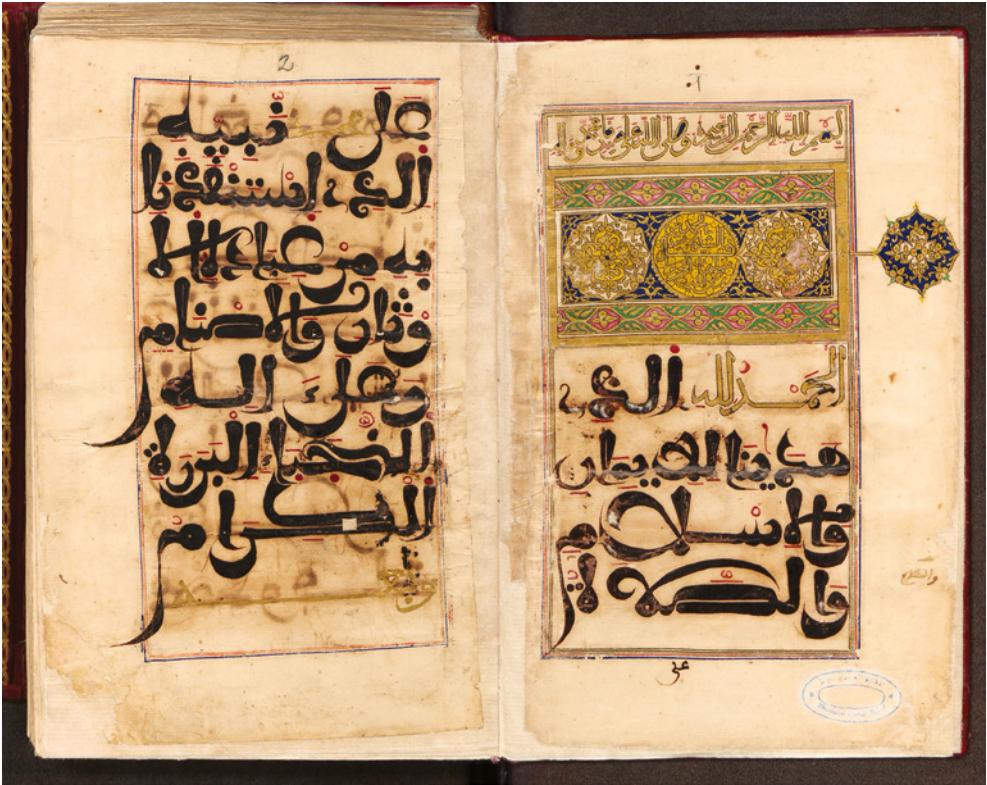 بسم الله الرحمن الرحيم وصلى الله على
الحمد لله الذي
هدينا للايمان
والاسلام
والصلاة
على
والسلام
2
على محمد نبيه
الذي استنقذنا
به من عبادة الا
وثان والاصنام
وعلى اله
النجباء البررة
الكرام
وبعد